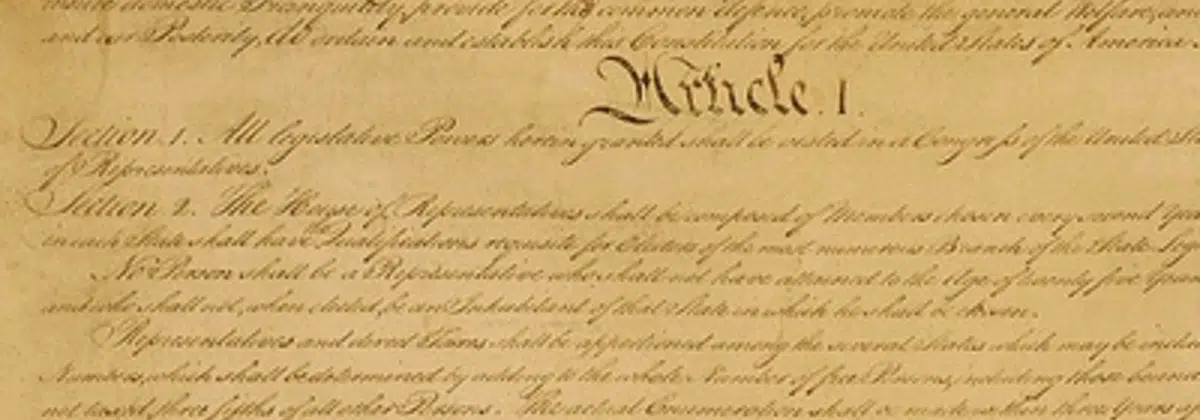 insure domestic Tranquility, provide for the common defence, promote the general Welfare, and
and our Posterity, do ordain and establish this Constitution for the United States of America.
Article. I.
Section. 1. All legislative Powers herein granted shall be vested in a Congress of the United Sta
of Representatives.
Section. 2. The House of Representatives shall be composed of Members chosen every second Yea
in each State shall have Qualifications requisite for Electors of the most numerous Branch of the State Legi
No Person shall be a Representative who shall not have attained to the Age of twenty five Years
and who shall not, when elected, be an Inhabitant of that State in which he shall be chosen.
Representatives and direct Taxes shall be apportioned among the several States which may be includ
Numbers, which shall be determined by adding to the whole Number of free Persons, including those bound
not taxed, three fifths of all other Persons. The actual Enumeration shall be made within three Years af